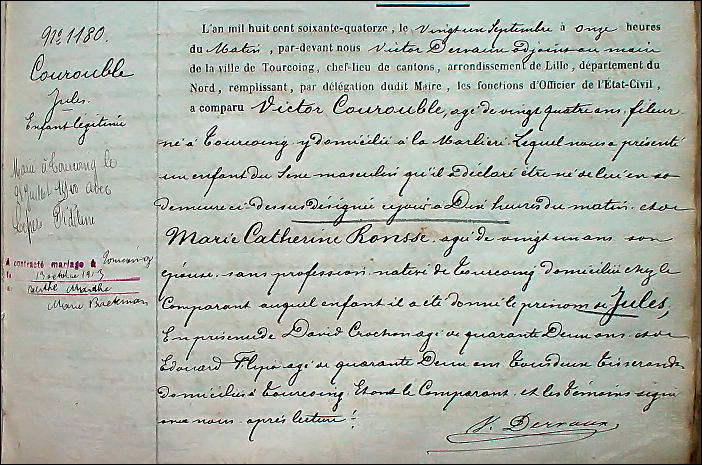 N° 1180.
Courouble
Jules.
Enfant légitime
Marié à Tourcoing le
Juillet 1900 avec
A contracté mariage à Tourcoing
le 13 octobre 1913
à Berthe Marthe
Marie Backman
L'an mil huit cent soixante-quatorze, le vingt un Septembre à onze heures
du Matin, par-devant nous Victor Dervaux adjoint au maire
de la ville de Tourcoing, chef-lieu de cantons, arrondissement de Lille, département du
Nord, remplissant, par délégation dudit Maire, les fonctions d'Officier de l'État-Civil,
a comparu Victor Courouble, agé de vingt quatre ans. fileur
né à Tourcoing y domicilié à la Marliere. Lequel nous a présenté
un enfant du Sexe masculin qu'il a déclaré être né de lui en sa
demeure ci-dessus désignée ce jour à Dix heures du matin. et de
Marie Catherine Ronsse, agée de vingt un ans son
épouse. sans profession native de Tourcoing domiciliée chez le
Comparant auquel enfant il a été donné le prénom de Jules,
En présence de David Crochon agé de quarante Deux ans et de
Edouard Flipo agé de quarante Deux ans Tous deux Tisserands
domiciliés à Tourcoing. Et ont le Comparant et les témoins signé
avec nous après lecture.
V. Dervaux